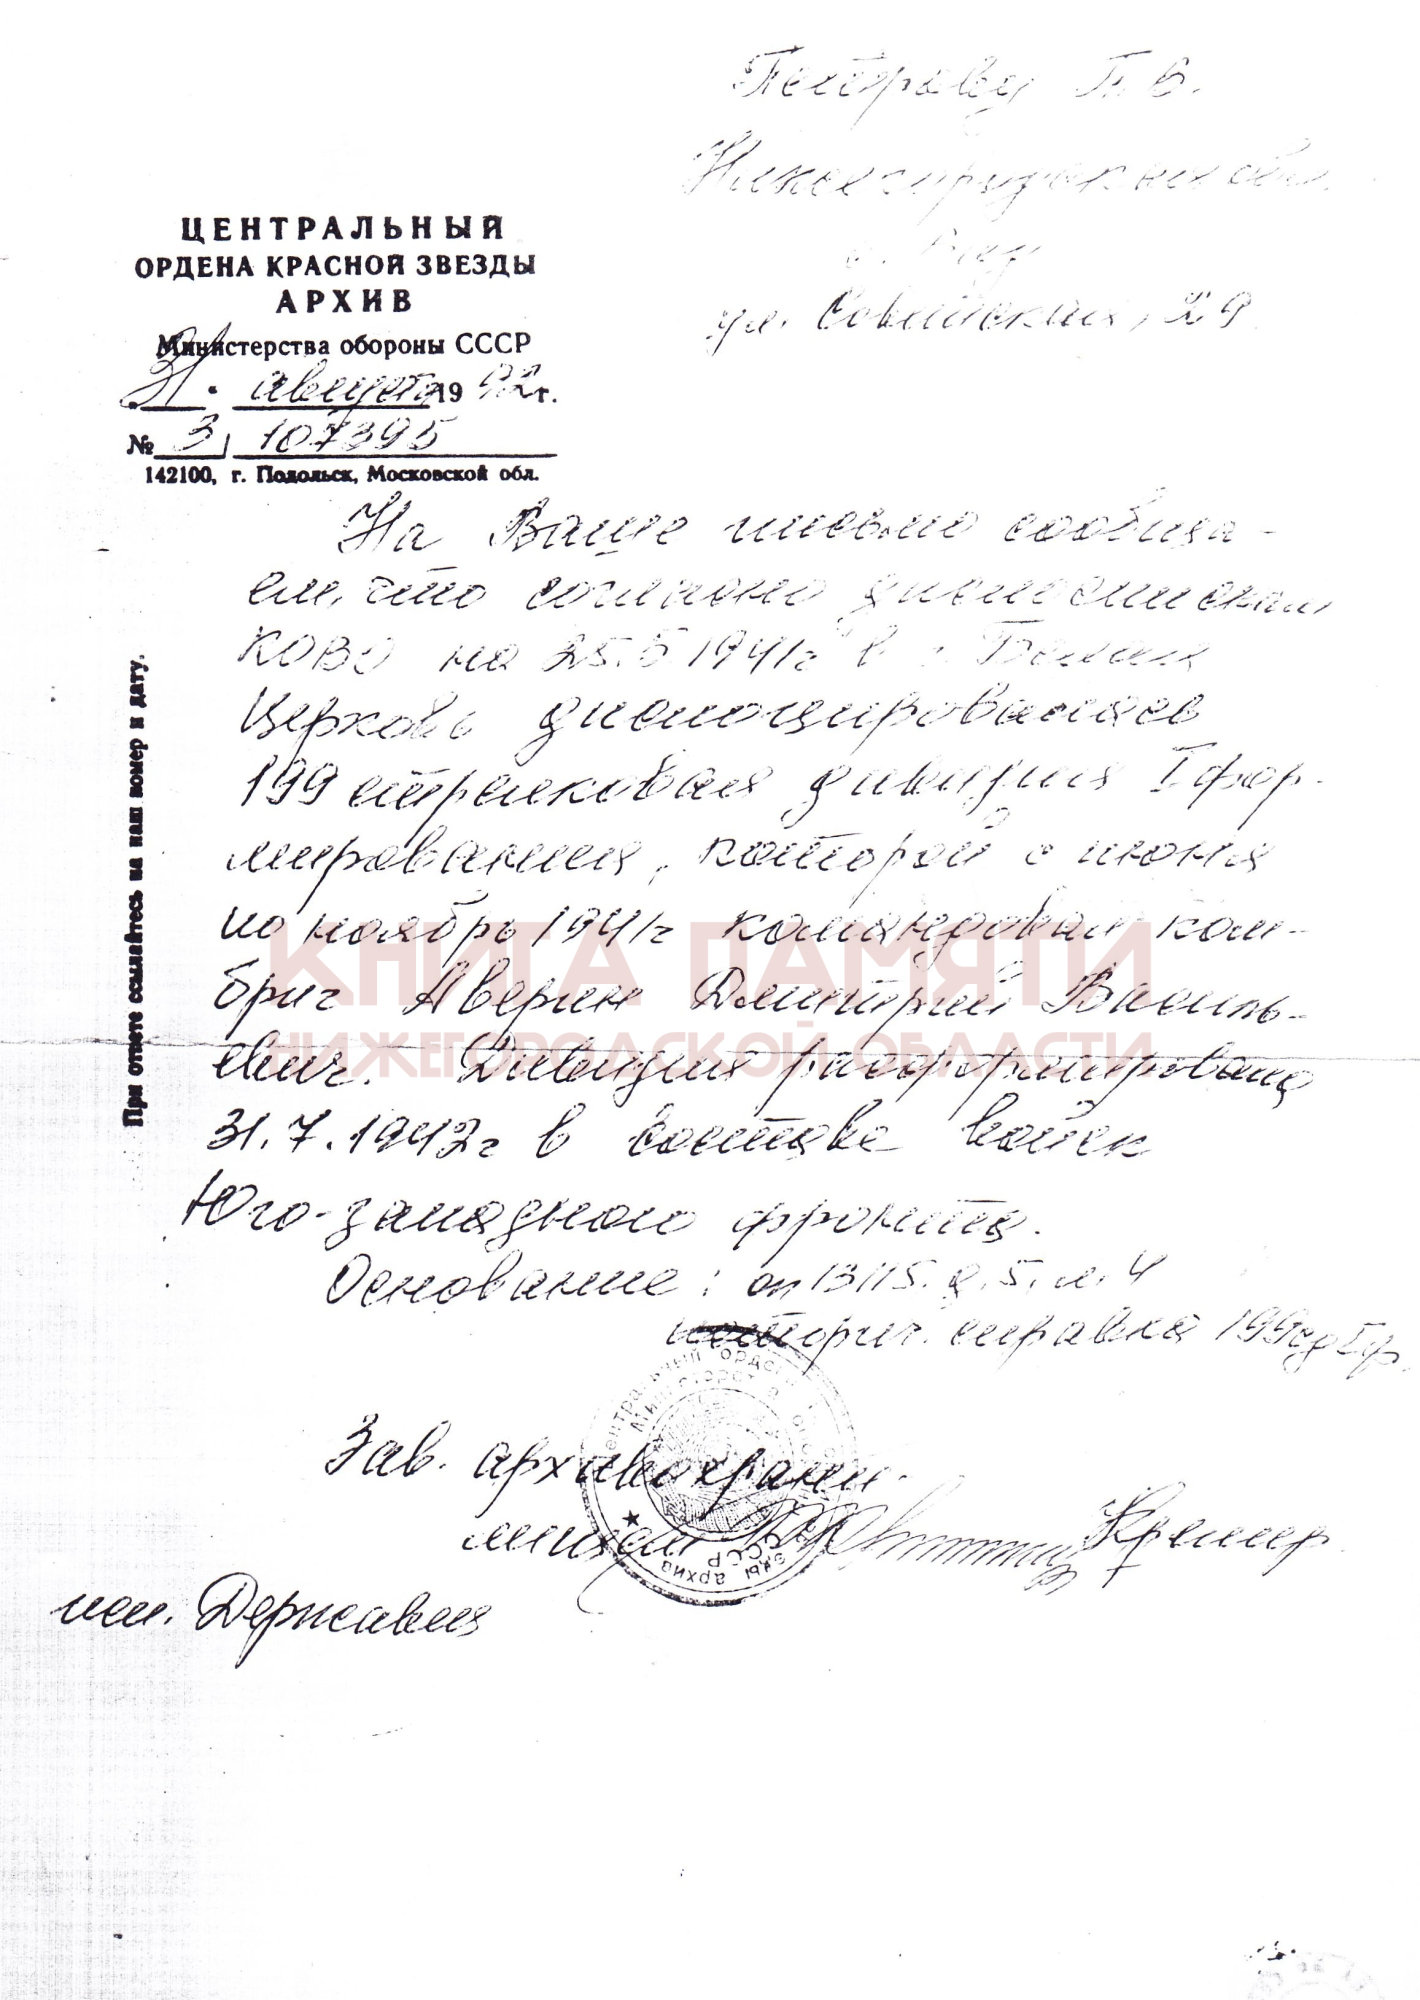 Петрову П. В.
Нижегородская обл.
ул. Советская, 29
ЦЕНТРАЛЬНЫЙ
ОРДЕНА КРАСНОЙ ЗВЕЗДЫ
АРХИВ
Министерства обороны СССР
31. августа 1992 г.
№ 3/ 107395
142100, г. Подольск, Московской обл.
При ответе ссылайтесь на наш номер и дату.
На Ваше письмо сообща-
ем, что согласно дислокации
КОВО на 25.5 1941г в г. Белая
Церковь дислоцировалась
199 стрелковая дивизия I фор-
мирования, которой с июня
по ноябрь 1941г командовал ком-
бриг Аверин Дмитрий Василь-
евич. Дивизия расформирована
31.7.1942г в составе войск
Юго-западного фронта.
Основание: оп 13115. д. 5. л. 4
историч. справка 199сд Iф.
Зав. архивохрани-
лищем Кремер
исп. Державина
КНИГА ПАМЯТИ
НИЖЕГОРОДСКОЙ ОБЛАСТИ